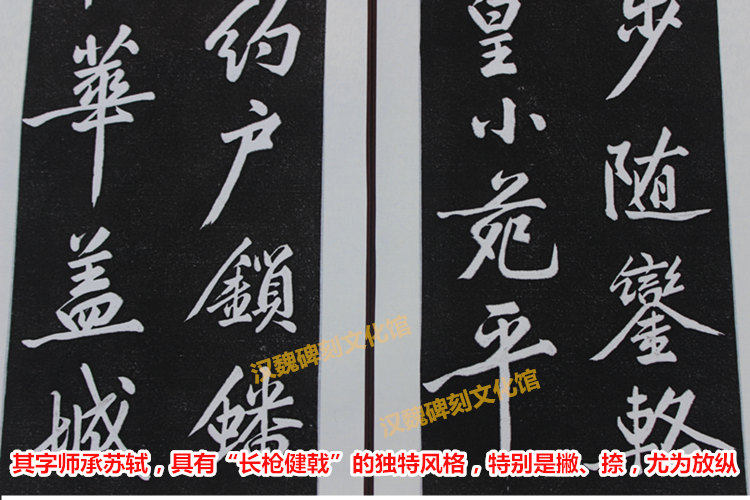 步随鑾輅
皇小苑平
約户鎖
華盖城
汉魏碑刻文化馆
汉魏碑刻文化馆
其字师承苏轼，具有“长枪健戟”的独特风格，特别是撇、捺，尤为放纵